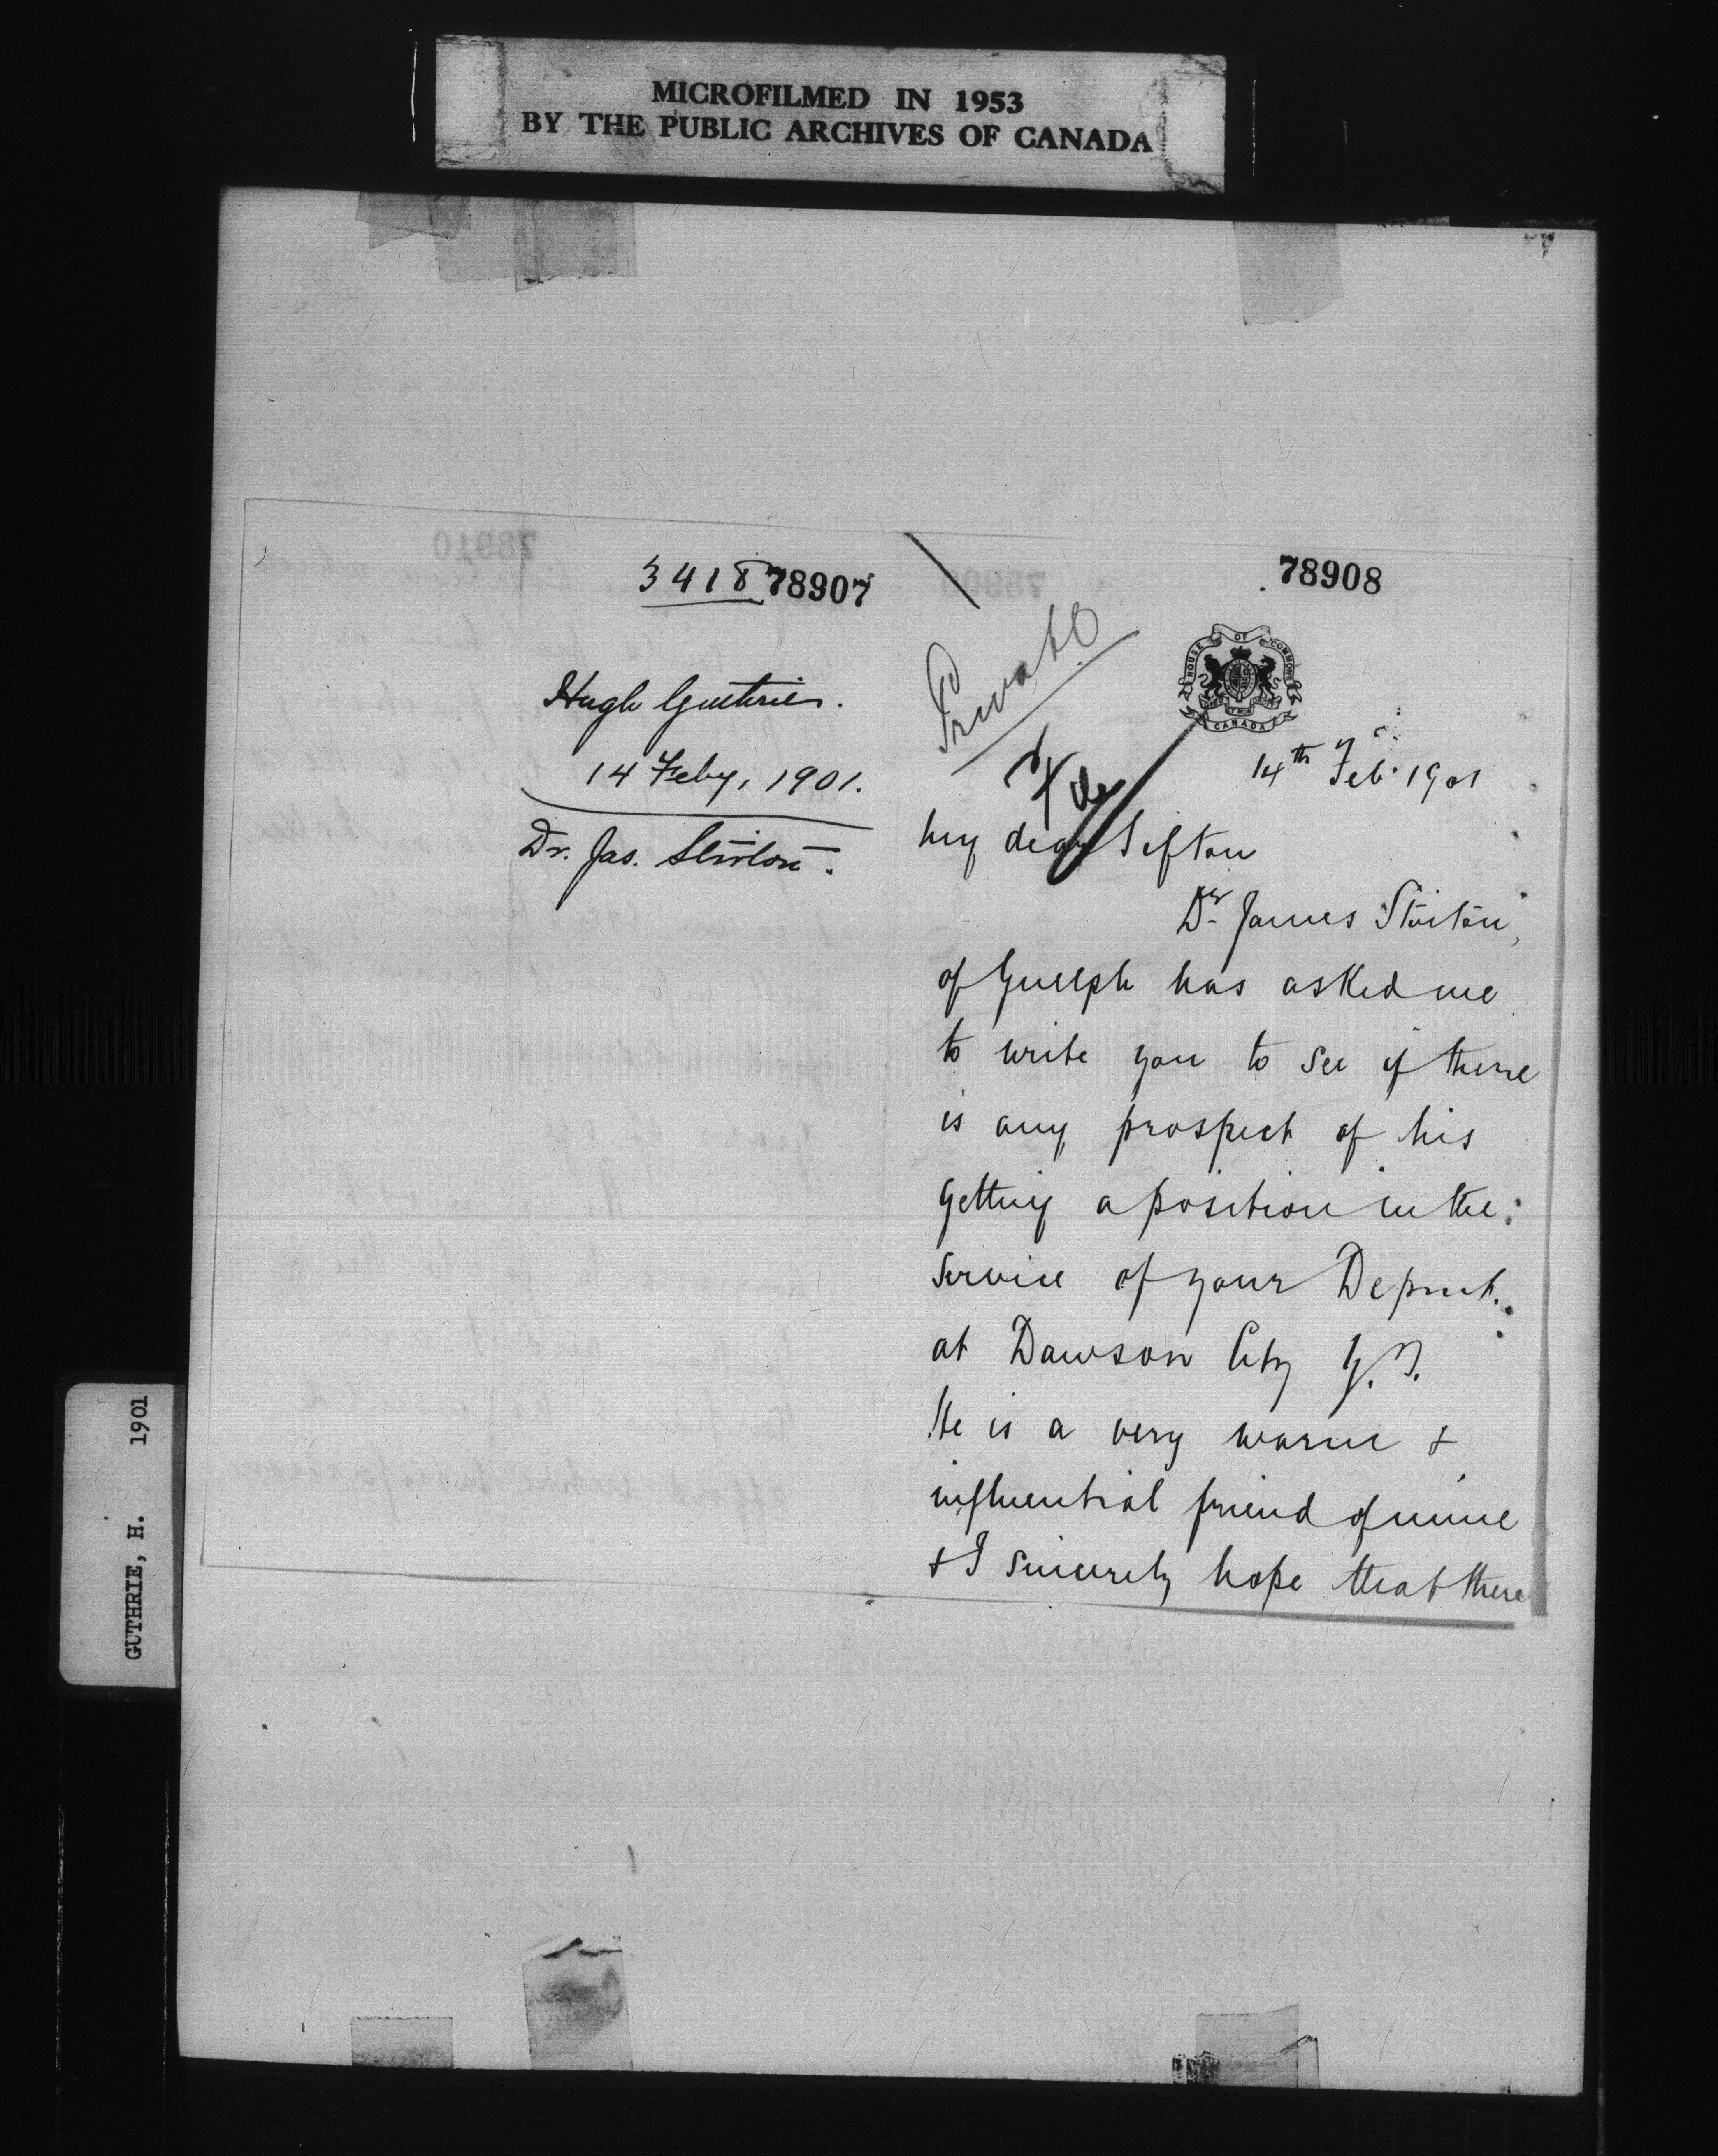 MICROFILMED IN 1953
BY THE PUBLIC ARCHIVES OF CANADA
3418 78907
Hugh Guthrie.
14 Feby, 1901.
Dr. Jas. Stirton.
78908
Private
HOUSE OF COMMONS
CANADA
14th Feb. 1901
My dear Sifton
Dr. James Stirton,
of Guelph has asked me
to write you to see if there
is any prospect of his
getting a position in the
service of your Depmt.
at Dawson City Y.T.
He is a very warm &
influential friend of mine
& I sincerely hope that there
GUTHRIE, H. 1901